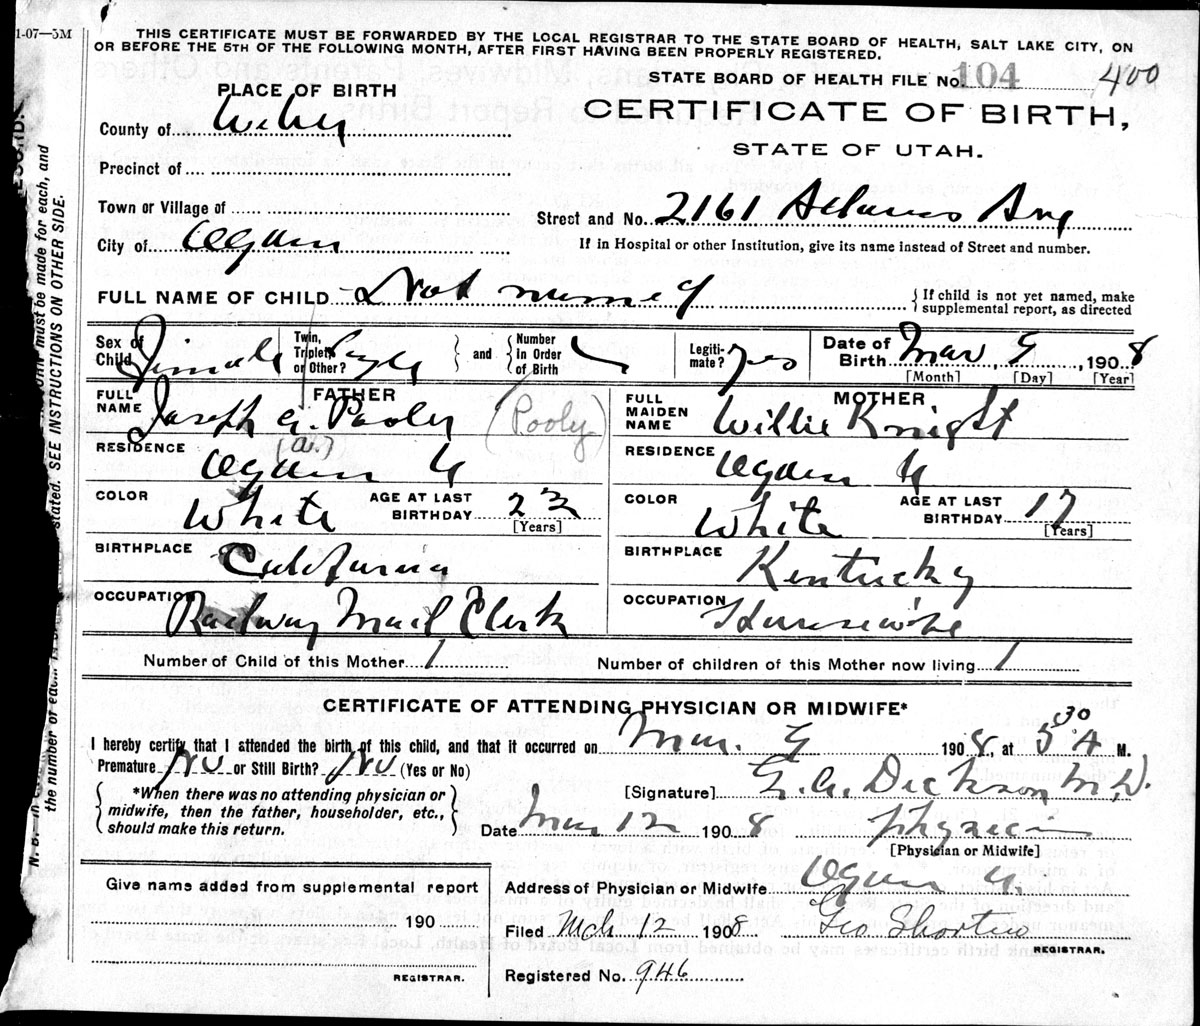 1-07—5M
THIS CERTIFICATE MUST BE FORWARDED BY THE LOCAL REGISTRAR TO THE STATE BOARD OF HEALTH, SALT LAKE CITY, ON
OR BEFORE THE 5TH OF THE FOLLOWING MONTH, AFTER FIRST HAVING BEEN PROPERLY REGISTERED.
STATE BOARD OF HEALTH FILE No. 104 400
PLACE OF BIRTH
CERTIFICATE OF BIRTH,
STATE OF UTAH.
County of Weber
Precinct of
Town or Village of
Street and No. 2161 Adams Ave
City of Ogden
If in Hospital or other Institution, give its name instead of Street and number.
FULL NAME OF CHILD Not named
If child is not yet named, make
supplemental report, as directed
Sex of Child Female
Twin, Triplet, or Other? Single
and
Number in Order of Birth
Legiti-mate? yes
Date of Birth Mar 9, 1908
[Month] [Day] [Year]
FATHER
FULL NAME Joseph a. Pooley (Pooly)
(a.)
RESIDENCE Ogden U
COLOR White
AGE AT LAST BIRTHDAY 23
[Years]
BIRTHPLACE California
OCCUPATION Railway Mail Clerk
MOTHER
FULL MAIDEN NAME Willie Knight
RESIDENCE Ogden U
COLOR White
AGE AT LAST BIRTHDAY 17
[Years]
BIRTHPLACE Kentucky
OCCUPATION Housewife
Number of Child of this Mother 1
Number of children of this Mother now living 1
CERTIFICATE OF ATTENDING PHYSICIAN OR MIDWIFE*
I hereby certify that I attended the birth of this child, and that it occurred on Mar. 9 1908, at 5 30 A M.
Premature No or Still Birth? No (Yes or No)
*When there was no attending physician or
midwife, then the father, householder, etc.,
should make this return.
[Signature] E. G. Dickson M.D.
Date Mar 12 1908
Physician
[Physician or Midwife]
Give name added from supplemental report
190
REGISTRAR.
Address of Physician or Midwife Ogden U.
Filed Mch 12 1908 Geo Shorten
REGISTRAR.
Registered No. 946
must be made for each, and
stated. SEE INSTRUCTIONS ON OTHER SIDE.
the number of each
N. B.